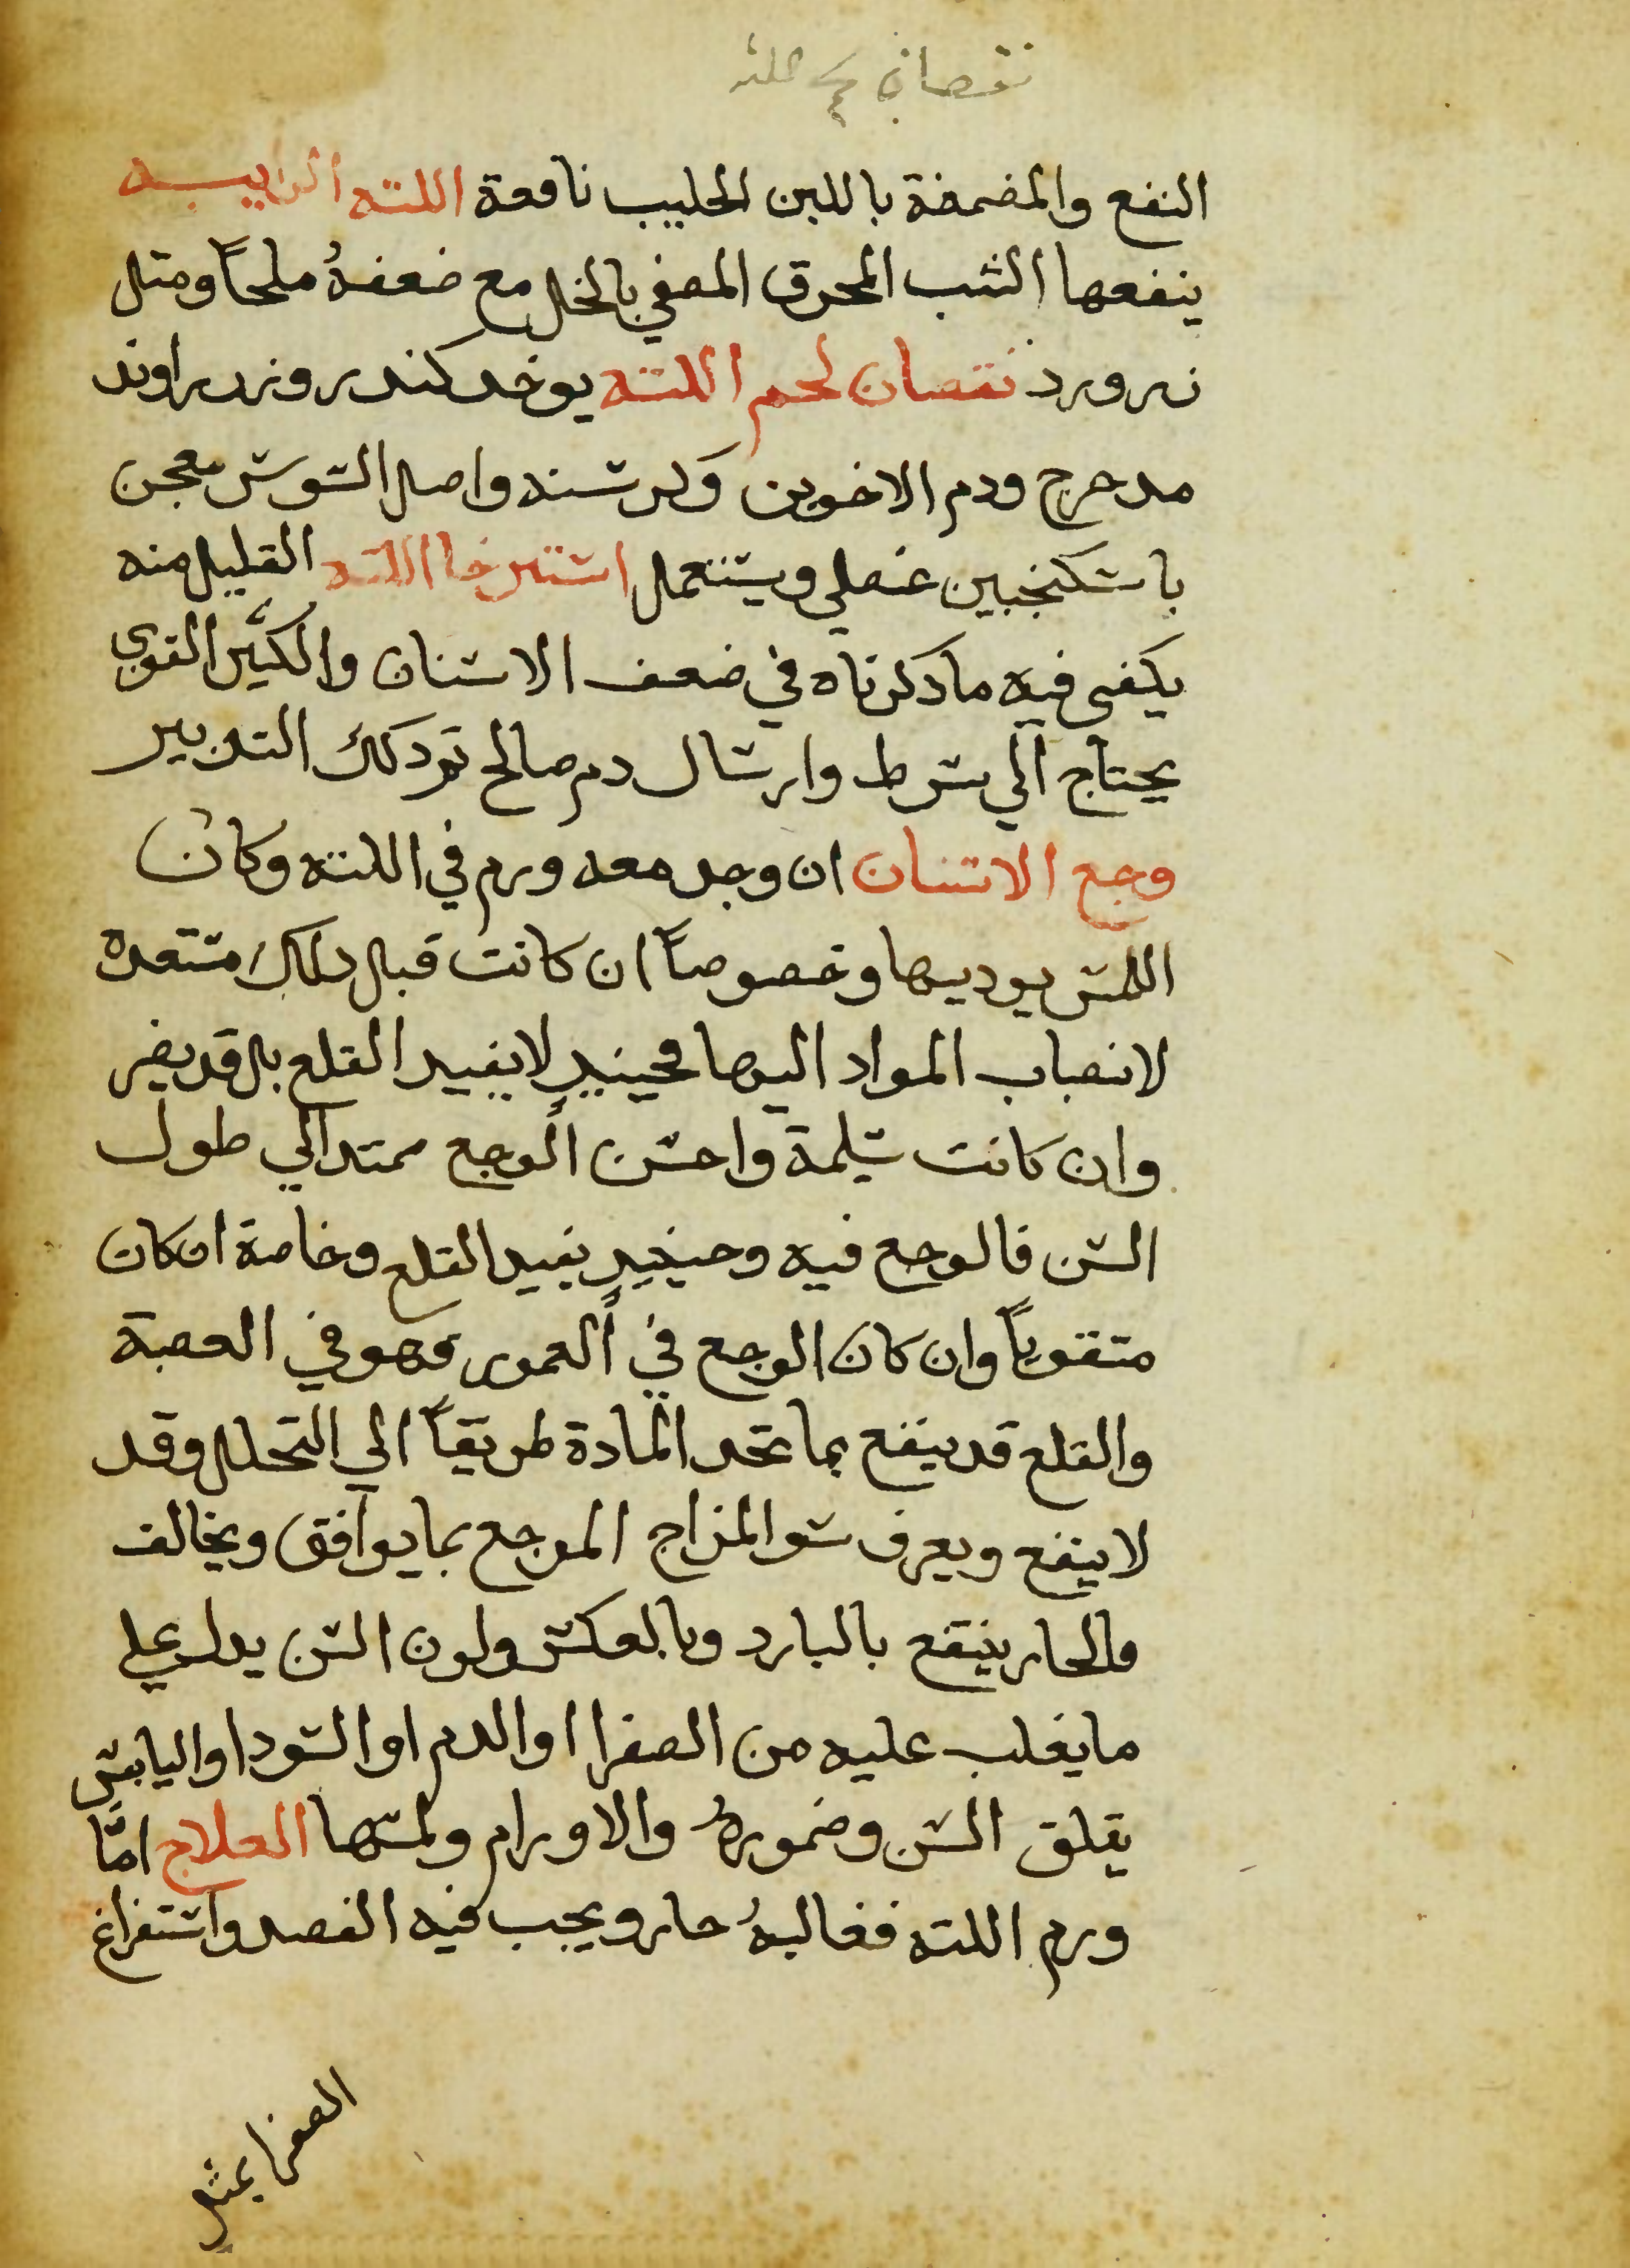 نقصان لحم اللثه
النفع والمضمضة باللبن الحليب نافعة اللثه الداميه
ينفعها الشب المحرق المصفي بالخل مع ضعفهُ ملحاً ومثل
زرورد نقصان لحم اللثه يوخد كندر وزراوند
مدحرج ودم الاخوين وكرسنه واصل السوسن معجن
باسكنجبين عنصلي ويستعمل استرخا اللثه القليل منه
يكفى فيه مادكرناه في ضعف الاسنان والكثير القوي
يحتاج الي شرط وارسال دم صالح ثم دلك التدبير
وجع الاسنان ان وجد معه ورم في اللثه وكان
اللمس يوديها وخصوصاً ان كانت قبل دلك مستعده
لانصباب المواد اليها فحينيدٍ لايفيد القلع بل قد يضر
وان كانت سليمة واحسن الوجع ممتد الي طول
السن فالوجع فيه وحينيدٍ يفيد القلع وخاصة ان كان
متقوياً وان كان الوجع في العمور فهو في العصبة
والقلع قد ينفع بما تجد المادة طريقاً الي التحلل وقد
لاينفع ويعرف سو المزاج الموجع بمايوافق ويخالف
فالحار ينتفع بالبارد وبالعكس ولون السن يدل علي
مايغلب عليه من الصفرا او الدم او السودا واليابس
يقلق السن وضمورهُ والاورام ولمسها العلاج امَّا
ورم اللثه فغالبهُ حار ويجب فيه الفصد واستفراغ
الصفرا بمثل